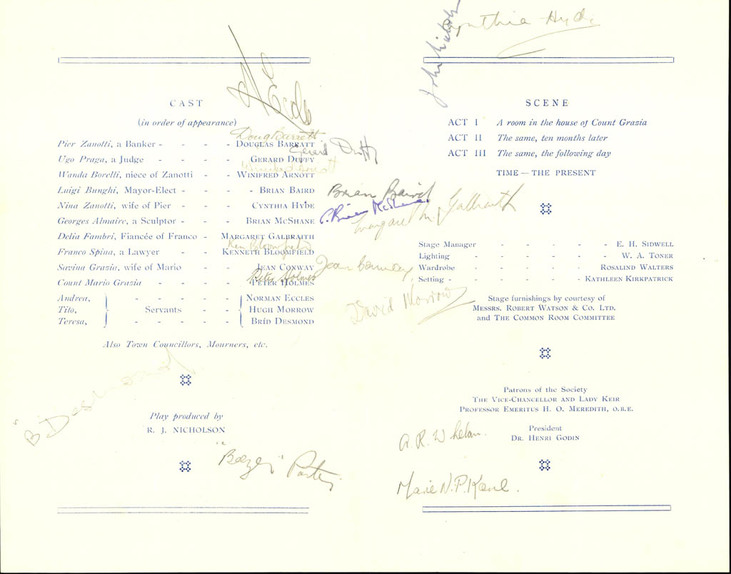 Cynthia Hyde
CAST
(in order of appearance)
Pier Zanotti, a Banker - - - - DOUGLAS BARRATT
Ugo Praga, a Judge - - - - GERARD DUFFY
Wanda Borelli, niece of Zanotti - - WINIFRED ARNOTT
Luigi Bunghi, Mayor-Elect - - - BRIAN BAIRD
Nina Zanotti, wife of Pier - - - CYNTHIA HYDE
Georges Almaire, a Sculptor - - - BRIAN McSHANE
Delia Fambri, Fiancée of Franco - MARGARET GALBRAITH
Franco Spina, a Lawyer - - KENNETH BLOOMFIELD
Savina Grazia, wife of Mario - - JEAN CONWAY
Count Mario Grazia - - - - PETER HOLMES
Andrea, NORMAN ECCLES
Tito, Servants - - - HUGH MORROW
Teresa, BRÍD DESMOND
Also Town Councillors, Mourners, etc.
Play produced by
R. J. NICHOLSON
Gerard Duffy
Brian Baird
Brian McShane
Margaret M Galbraith
Ken Bloomfield
Jean Conway
Peter Holmes
David Morrow
B Desmond
"Boezy"
SCENE
ACT I A room in the house of Count Grazia
ACT II The same, ten months later
ACT III The same, the following day
TIME — THE PRESENT
Stage Manager - - - - E. H. SIDWELL
Lighting - - - - - W. A. TONER
Wardrobe - - - - ROSALIND WALTERS
Setting - - - - KATHLEEN KIRKPATRICK
Stage furnishings by courtesy of
MESSRS. ROBERT WATSON & CO. LTD.
and THE COMMON ROOM COMMITTEE
Patrons of the Society
THE VICE-CHANCELLOR AND LADY KEIR
PROFESSOR EMERITUS H. O. MEREDITH, O.B.E.
President
DR. HENRI GODIN
A. R. Whelan.
Marie N. P. Kane.